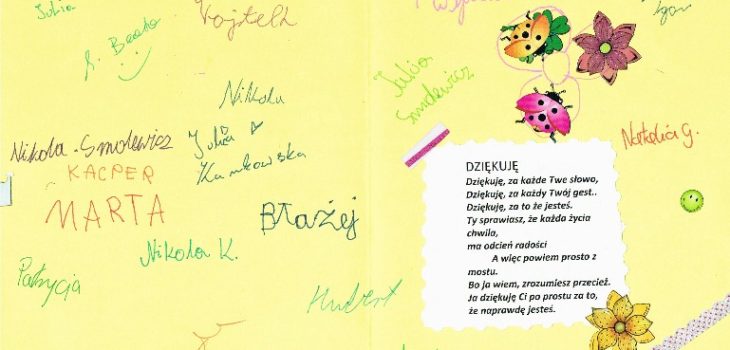 Julia
S. Beata
Nikola
Nikola Smolewicz
Julia
KACPER
MARTA
Błażej
Nikola K.
Patrycja
Hubert
Igor
Julia
Smolewicz
Natalia G.
DZIĘKUJĘ
Dziękuję, za każde Twe słowo,
Dziękuję, za każdy Twój gest..
Dziękuję, za to że jesteś.
Ty sprawiasz, że każda życia
chwila,
ma odcień radości
A więc powiem prosto z
mostu.
Bo ja wiem, zrozumiesz przecież.
Ja dziękuję Ci po prostu za to,
że naprawdę jesteś.